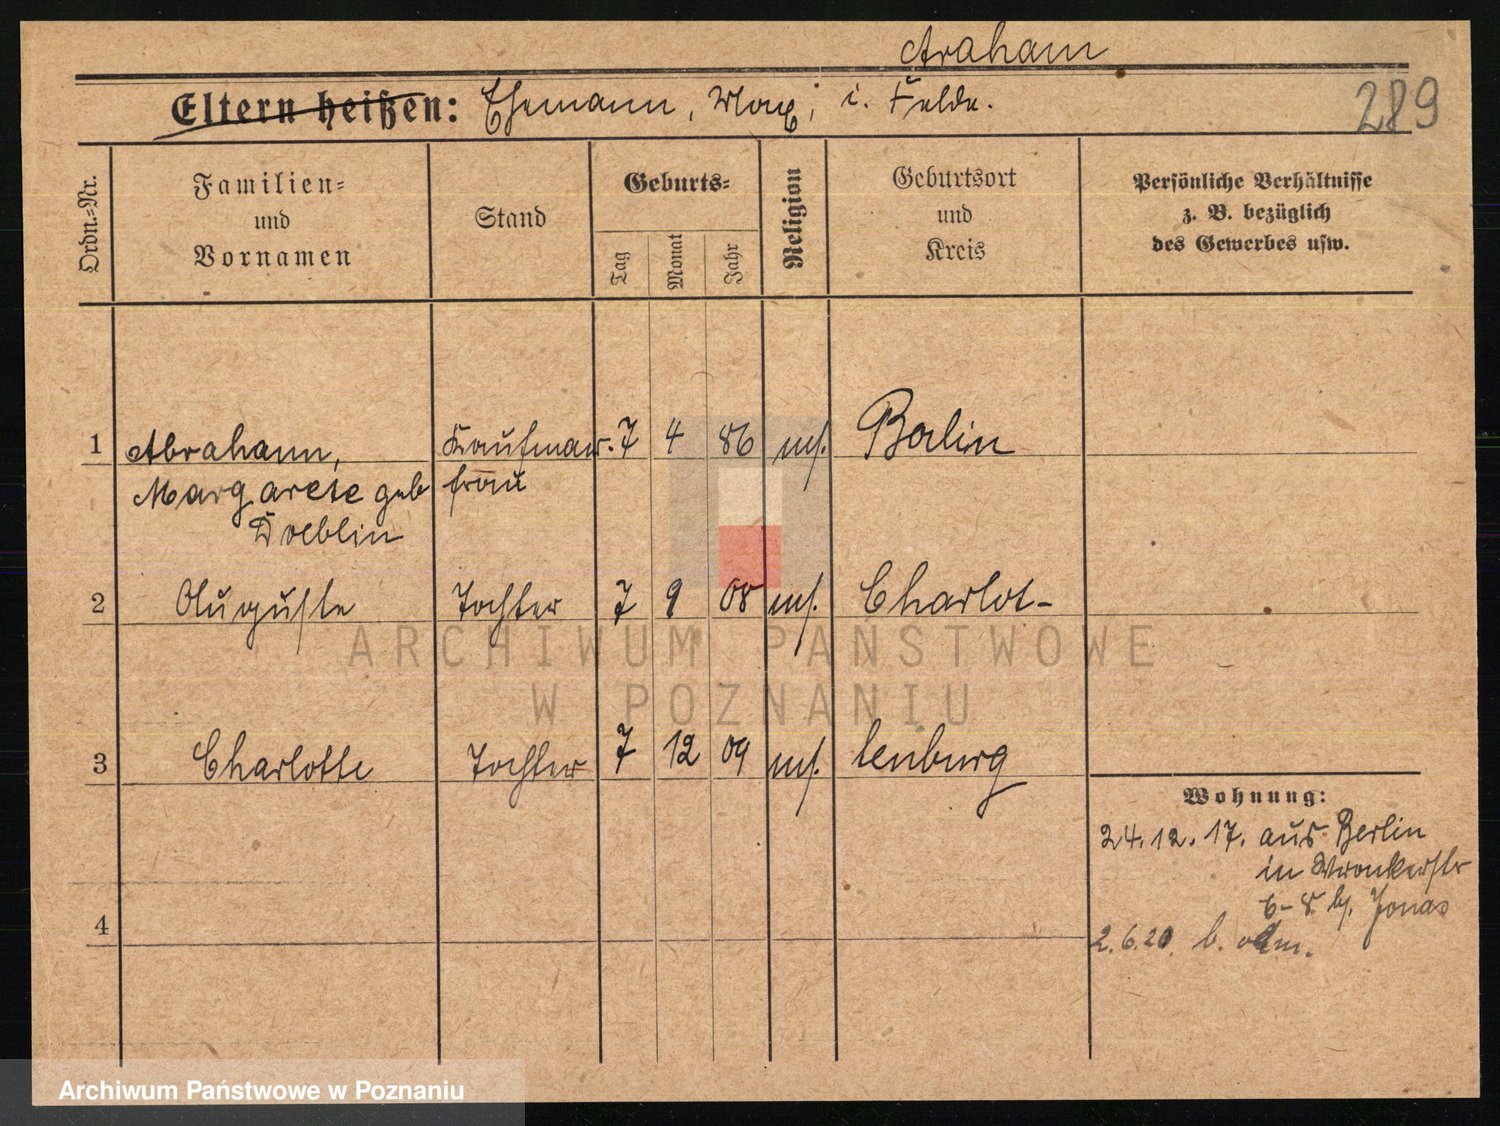 Araham
Eltern heißen: Ehemann, Max, i. Felde.
289
Ordn.-Nr.
Familien-
und
Vornamen
Stand
Geburts-
Tag
Monat
Jahr
Religion
Geburtsort
und
Kreis
Persönliche Verhältnisse
z. B. bezüglich
des Gewerbes usw.
1 Abrahann, Kaufman. 7 4 86 Berlin
Margarete geb frau
Doeblin
2 Auguste Tochter 7 9 08 Charlot-
3 Charlotte Tochter 7 12 09 tenburg
Wohnung:
24.12.17. aus Berlin
in Wronkerstr
6-8 Jonas
4
2.6.20. b.
ARCHIWUM PAŃSTWOWE
W POZNANIU
Archiwum Państwowe w Poznaniu